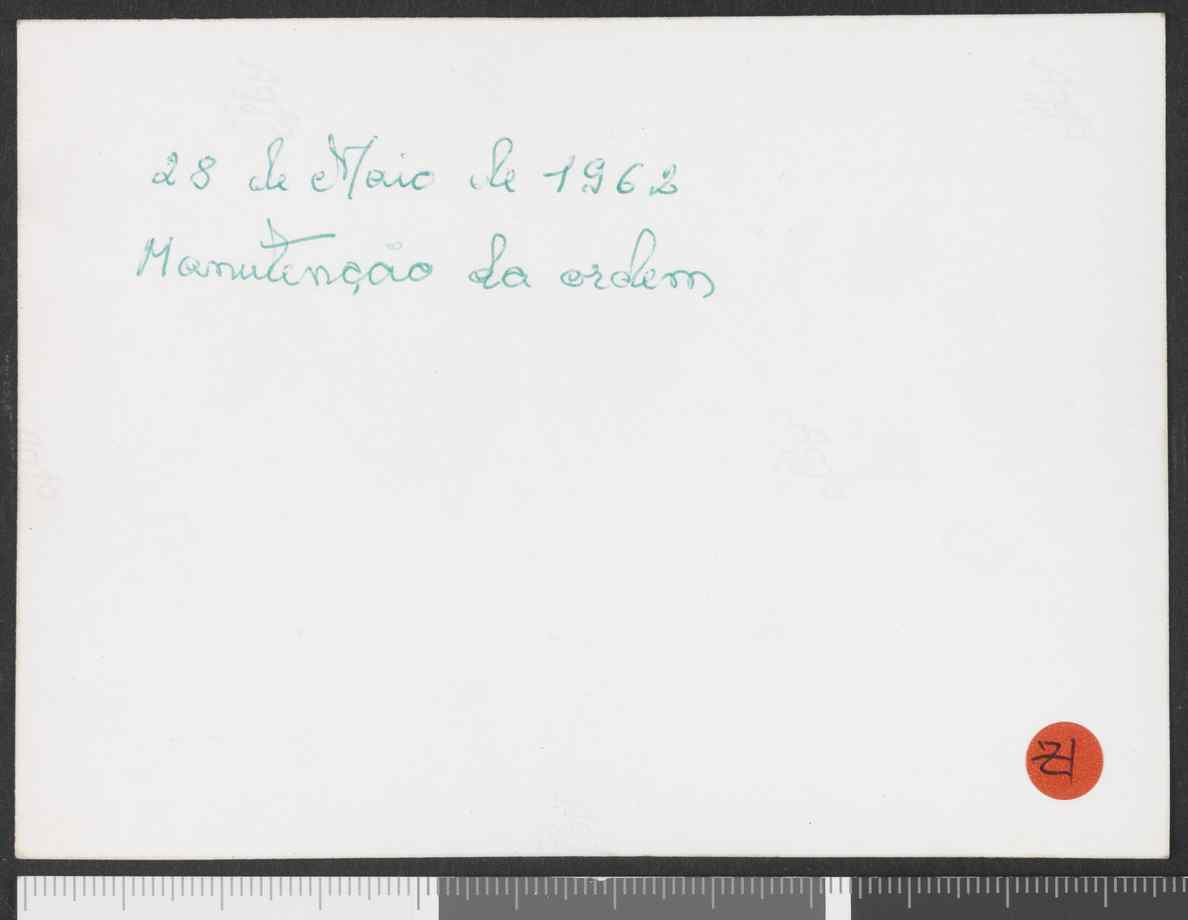 28 de Maio de 1962
Manutenção da ordem